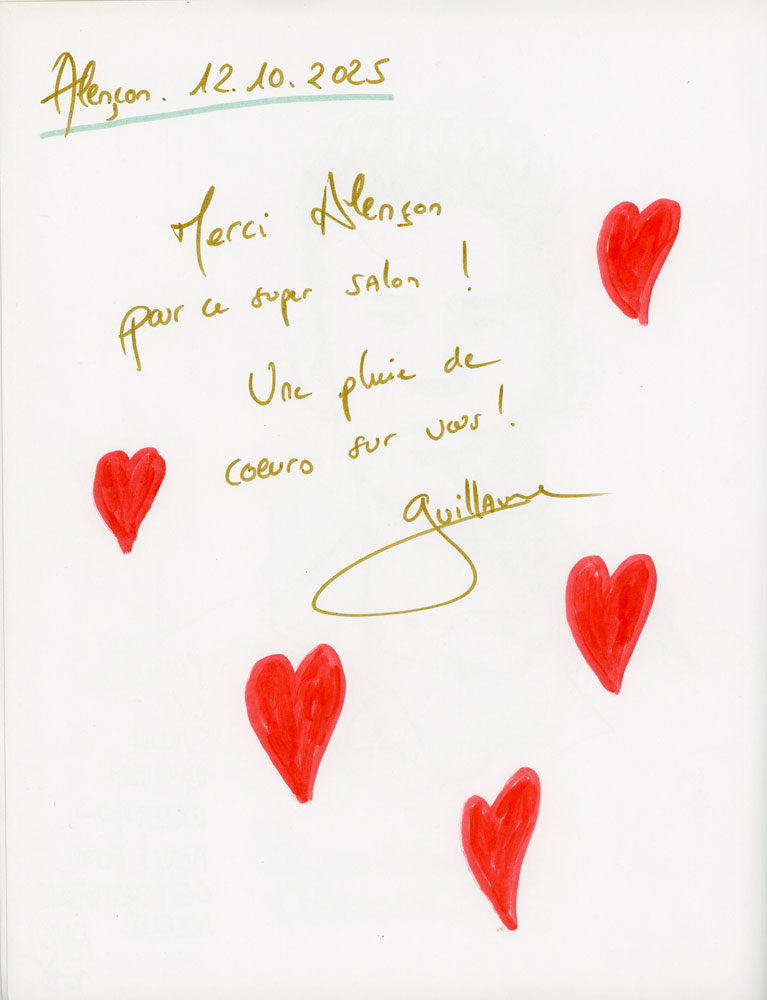 Alençon. 12.10.2025
Merci Alençon
pour ce super salon !
Une pluie de
coeurs sur vous !.
Guillaume